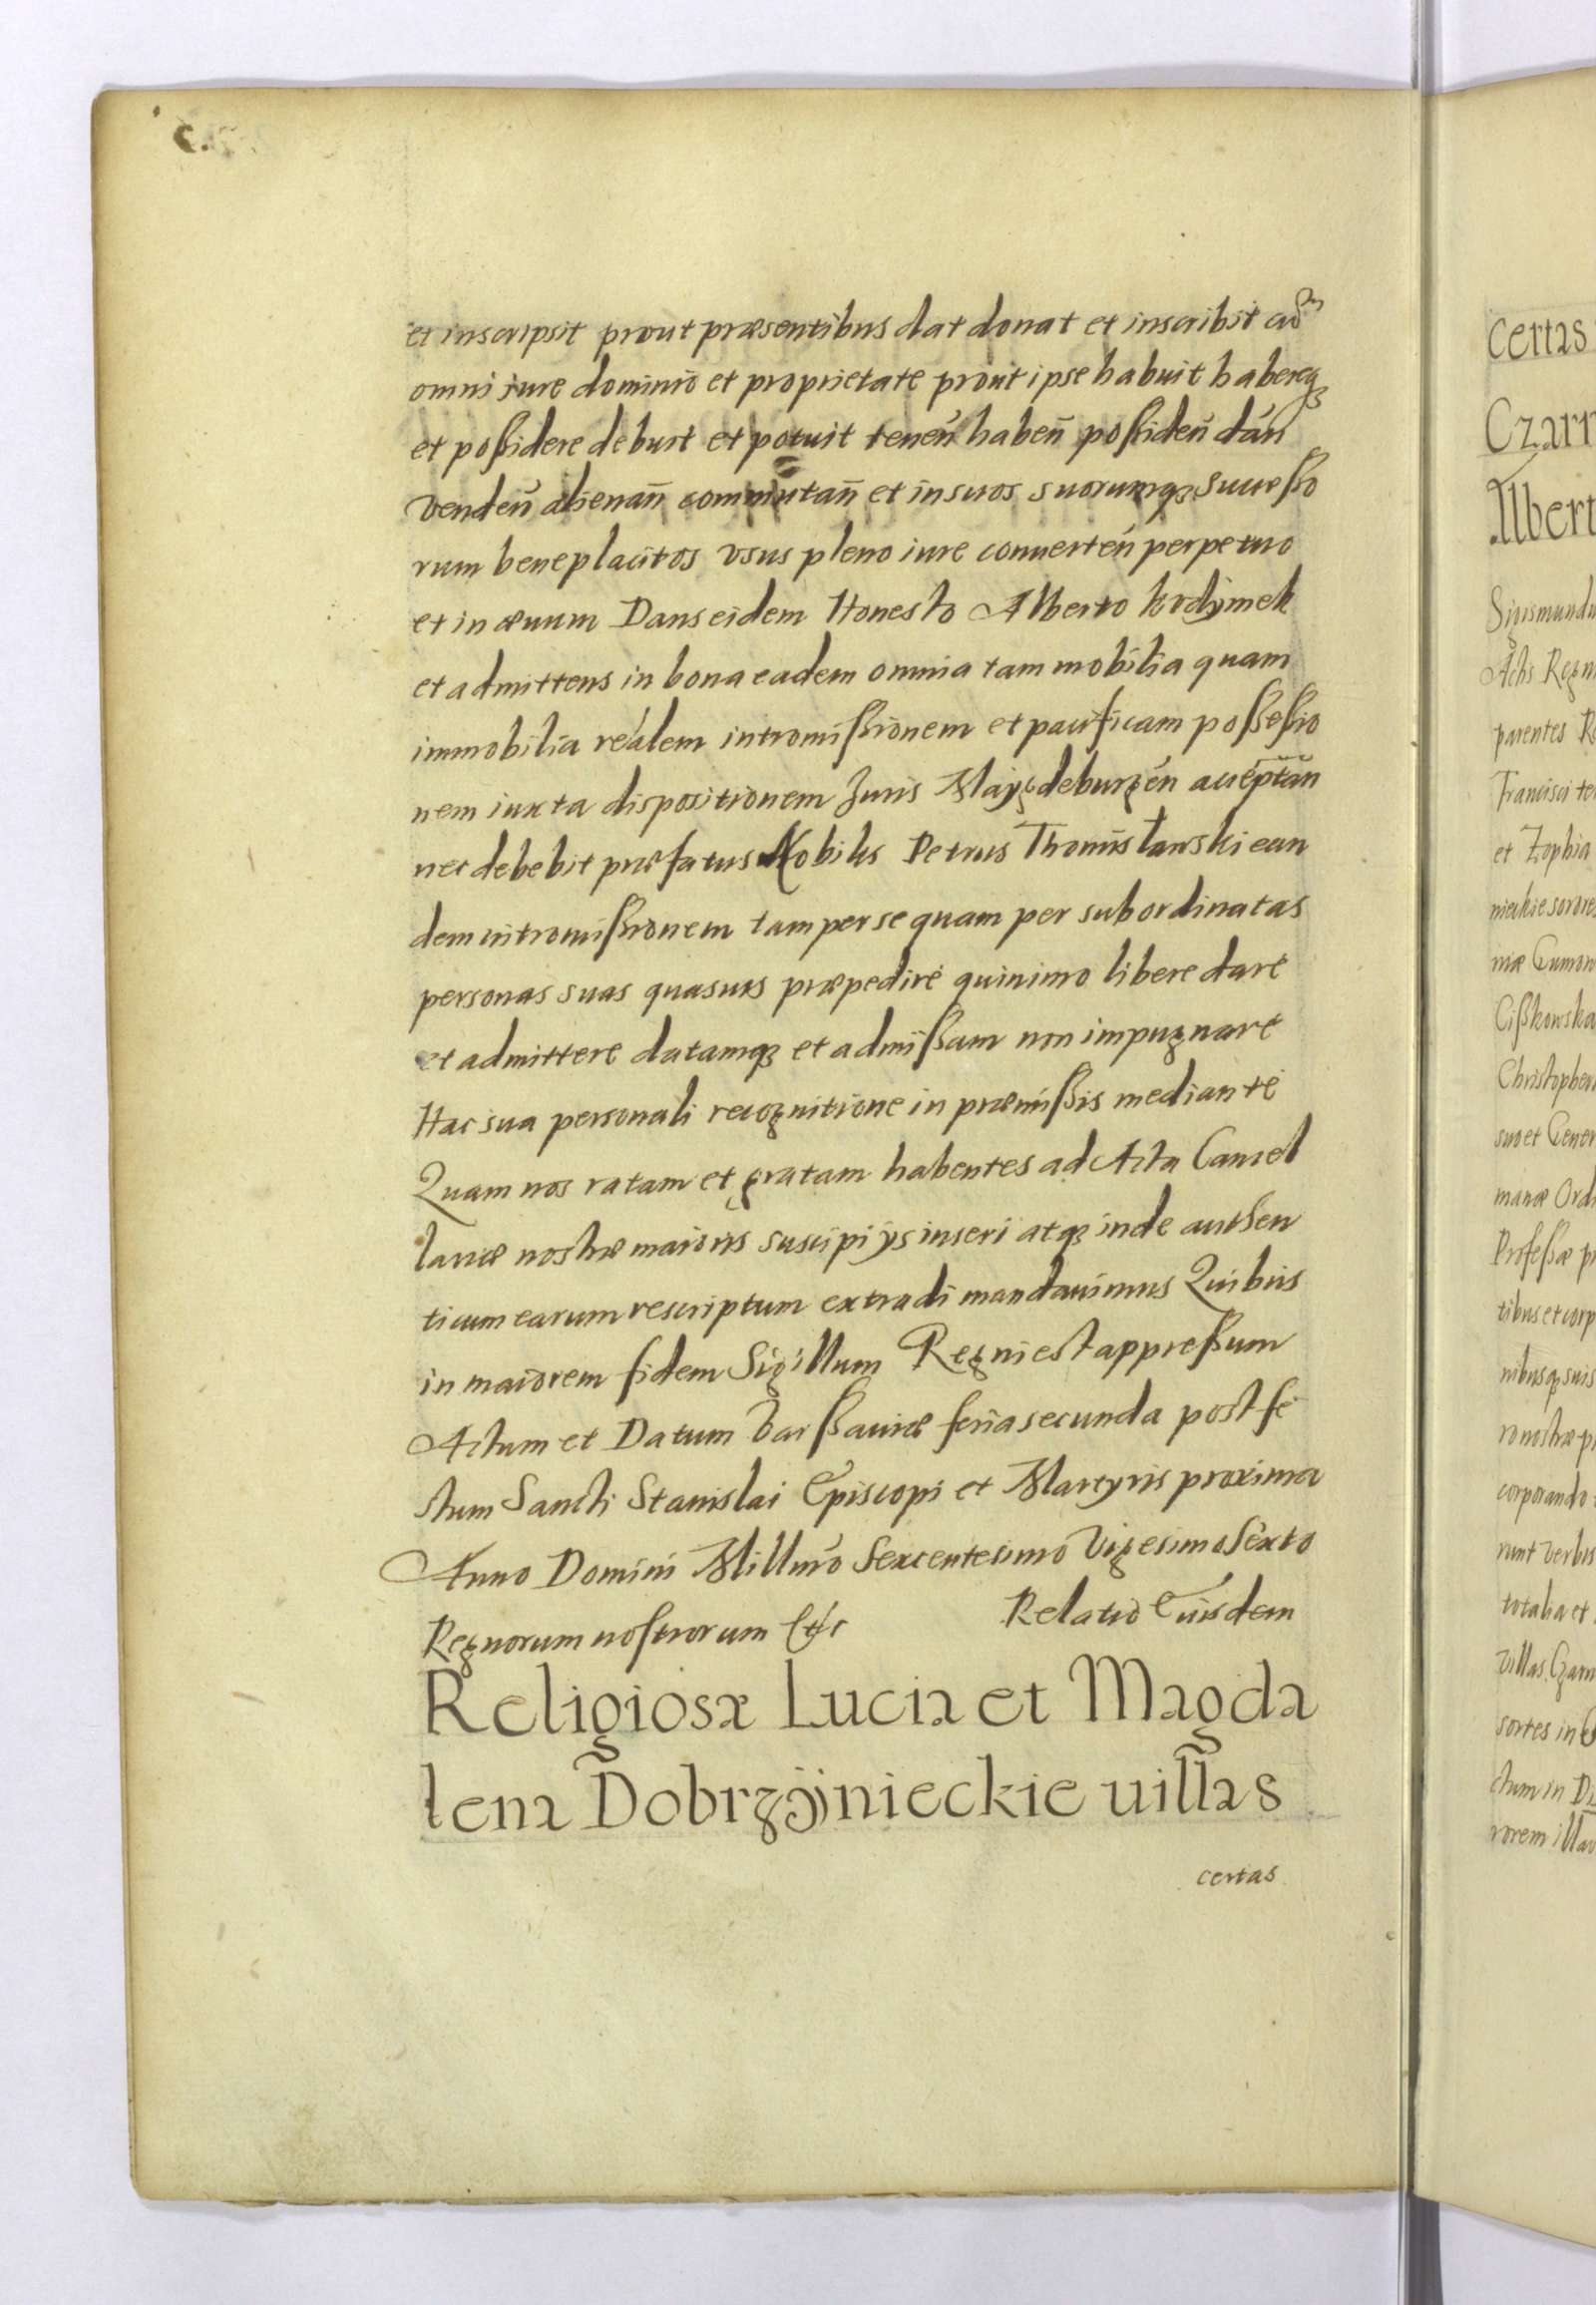 et inscripsit prout præsentibus dat donat et inscribit cū
omni iure dominio et proprietate prout ipse habuit habereq₃
et poßidere debuit et potuit teneñ habeñ poßideñ dañ
vendeñ alienañ commutañ et in suos suorumq₃ succeßo
rum beneplacitos vsus pleno iure conuerteñ perpetuo
et in æuum Dans eidem Honesto Alberto Krdÿmek
et admittens in bona eadem omnia tam mobilia quam
immobilia realem intromißionem et pacificam poßeßio
nem iuxta dispositionem Juris Maÿgdeburgeñ acceptañ
nec debebit præfatus Nobilis Petrus Thomisławski ean
dem intromißionem tam per se quam per subordinatas
personas suas quasuis præpedire quinimo libere dare
et admittere datamq₃ et admißam non impugnare
Hac sua personali recognitione in præmißis mediante
Quam nos ratam et gratam habentes ad Acta Cancel
lariæ nostræ maioris suscipi ijs inseri atq₃ inde authen
ticum earum rescriptum extradi mandauimus Quibus
in maiorem fidem Sigillum Regni est appreßum
Actum et Datum Varßauiæ feria secunda post fe
stum Sancti Stanislai Episcopi et Martyris proxima
Anno Domini Millmo Sexcentesimo Vigesimo Sexto
Regnorum nostrorum Etc Relatio Eiusdem
Religiosæ Lucia et Magda
lena Dobrzÿnieckie uillas
certas
certas
Czarn
Albert
Sigismundu
Actis Regn
parentes R
Francisci te
et Zophia
nieckie sorores
niæ Cumon
Cißkowska
Christopher
suo et Gener
manæ Ord
Profeßæ p
tibus et corp
nibusq₃ suis
ro nostræ p
corporando
runt verbis
totalia et
Villas Czarn
sortes in
ctum in Di
rorem illa